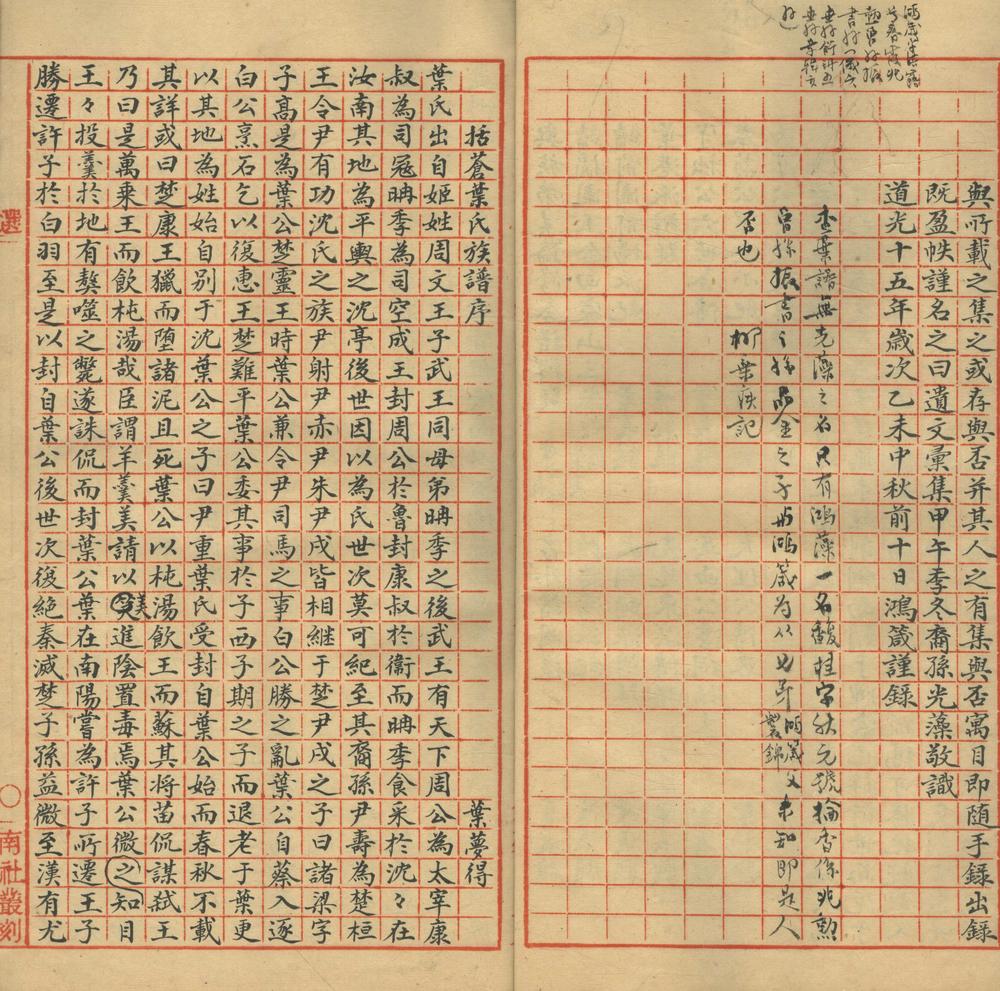 與所載之集之或存與否并其人之有集與否寓目即随手録出録
既盈帙謹名之曰遺文彙集甲午季冬裔孫光藻敬識
道光十五年歲次乙未中秋前十日鴻箴謹録
查葉譜無光藻之名只有鴻藻一名馥桂字秋元號掄香係兆勲
曾孫振書之孫金之子与鴻箴为从兄弟鴻箴父未知即是人
製錦
否也
柳葉
記
括蒼葉氏族譜序
葉夢得
葉氏出自姬姓周文王子武王同母弟冉季之後武王有天下周公為太宰康
叔為司寇冉季為司空成王封周公於魯封康叔於衞而冉季食采於沈々在
汝南其地為平輿之沈亭後世因以為氏世次莫可紀至其裔孫尹壽為楚桓
王令尹有功沈氏之族尹射尹赤尹朱尹戌皆相継于楚尹戌之子曰諸梁字
子髙是為葉公楚靈王時葉公兼令尹司馬之事白公勝之亂葉公自蔡入逐
白公烹石乞以復惠王楚難平葉公委其事於子西子期之子而退老于葉更
以其地為姓始自别于沈葉公之子曰尹重葉氏受封自葉公始而春秋不載
其詳或曰楚康王獵而堕諸泥且死葉公以杬湯飲王而蘇其将苗侃謀弒王
乃曰是萬乘王而飲杬湯哉臣謂羊羹美請以羹進陰置毒焉葉公微之知目
王々投羹於地有獒噬之斃遂誅侃而封葉公葉在南陽嘗為許子所遷王子
勝遷許子於白羽至是以封自葉公後世次復絶秦滅楚子孫益微至漢有尤
選
南社叢刻